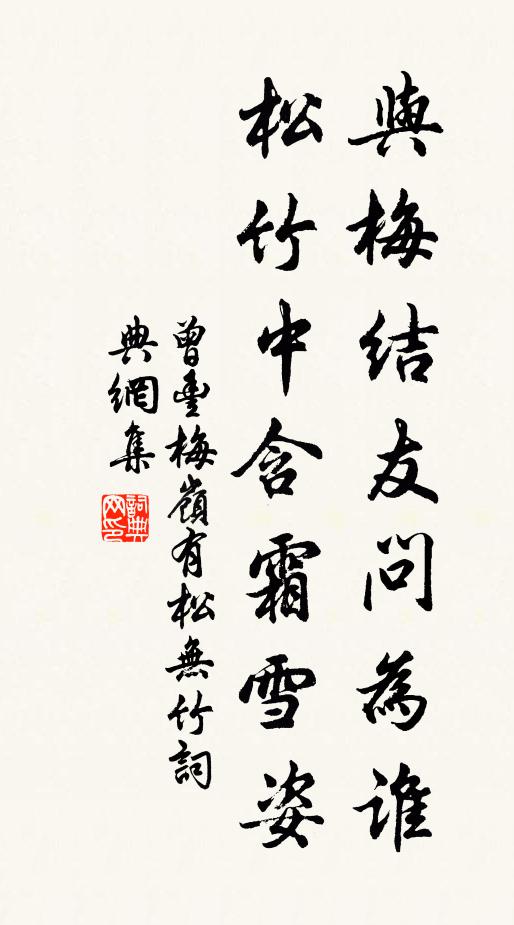 與梅結友問為誰
松竹中含霜雪姿
曾豐梅嶺有松無竹詞
典網集
詞典
网印